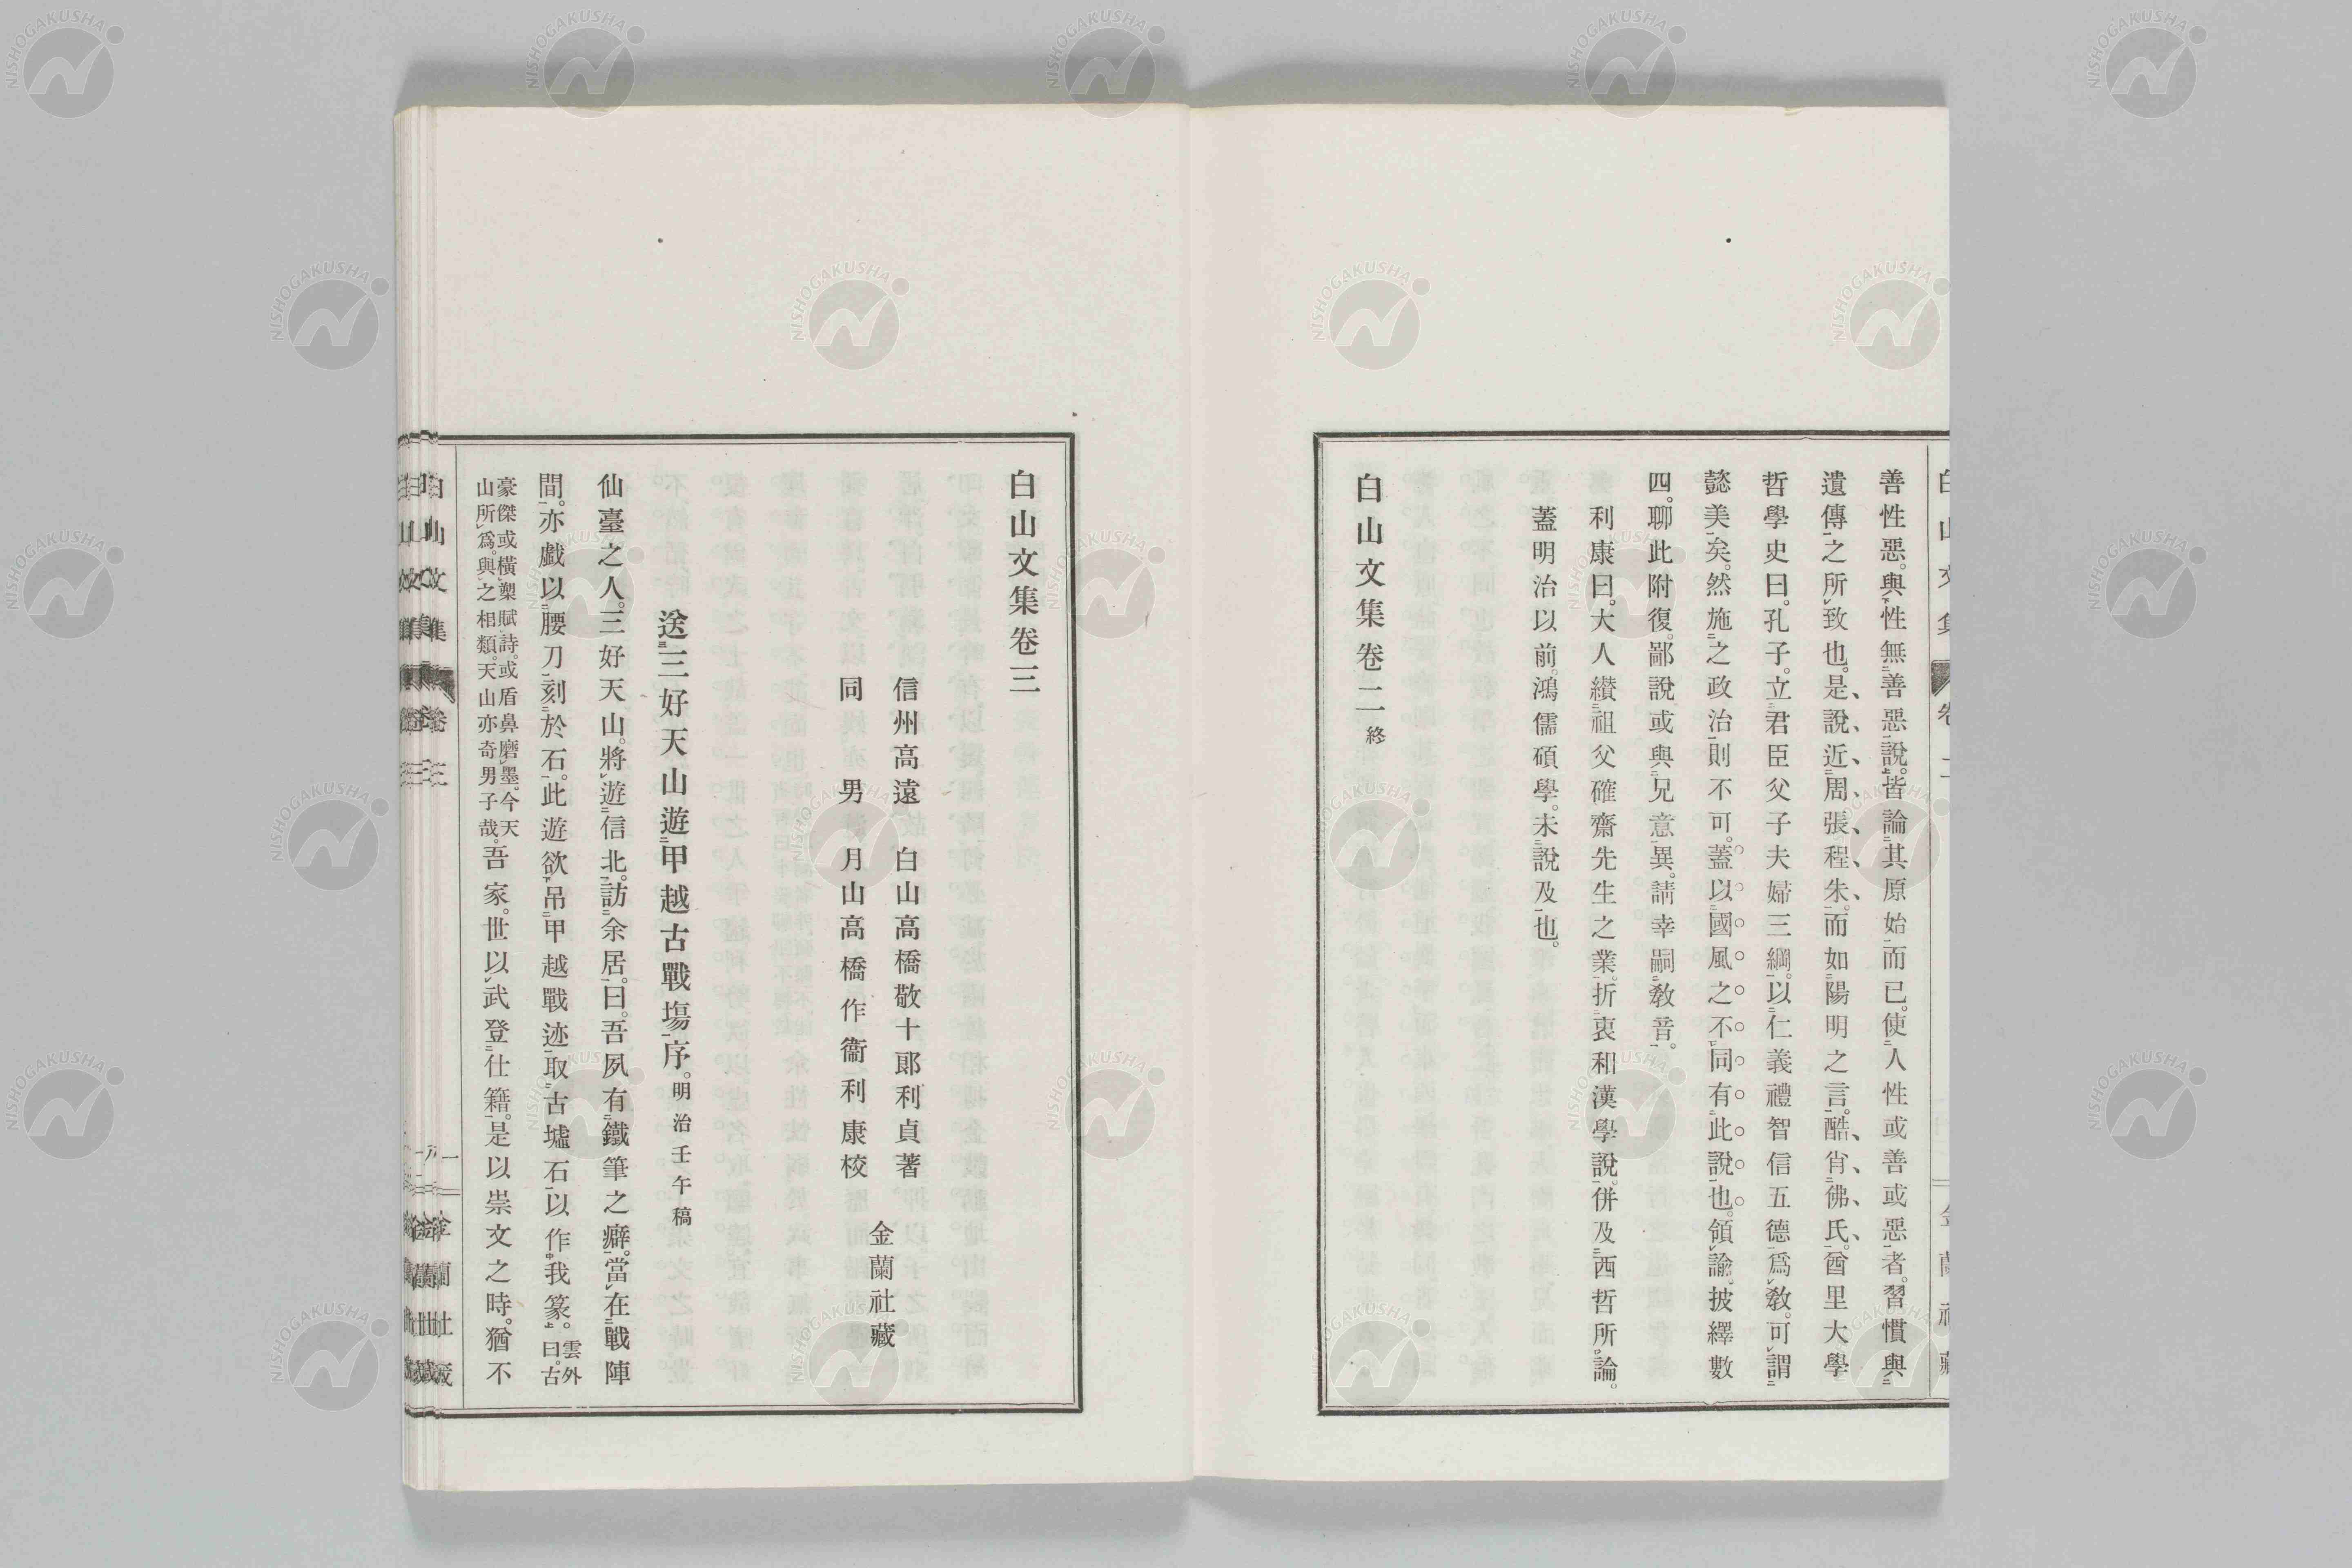 善性惡。與性無善惡說。皆論其原始而已。使人性或善或惡者。習慣與
遺傳之所致也。是說近周張程朱。而如陽明之言。酷肖佛氏。酋里大學
哲學史曰。孔子。立君臣父子夫婦三綱。以仁義禮智信五德爲教。可謂
懿美矣。然施之政治則不可。蓋以國風之不同有此說也。領諭。披繹數
四。聊此附復。鄙說或與兄意異。請幸嗣教音。
利康曰。大人纉祖父確齋先生之業。折衷和漢學說。併及西哲所論。
蓋明治以前。鴻儒碩學。未說及也。
白山文集卷二終
白山文集卷三
信州高遠 故 白山高橋敬十郎利貞著
同 男 月山高橋作衞利康校
金蘭社藏
送三好天山遊甲越古戰場序。明治壬午稿
仙臺之人。三好天山。將遊信北。訪余居。曰。吾夙有鐵筆之癖。當在戰陣
間。亦戲以腰刀刻於石。此遊欲吊甲越戰迹取古墟石以作我篆。雲外曰。古
豪傑或橫槊賦詩。或盾鼻磨墨。今天山所爲。與之相類。天山亦奇男子哉。吾家。世以武登仕籍。是以崇文之時。猶不
白山文集 卷三 一 金蘭社藏